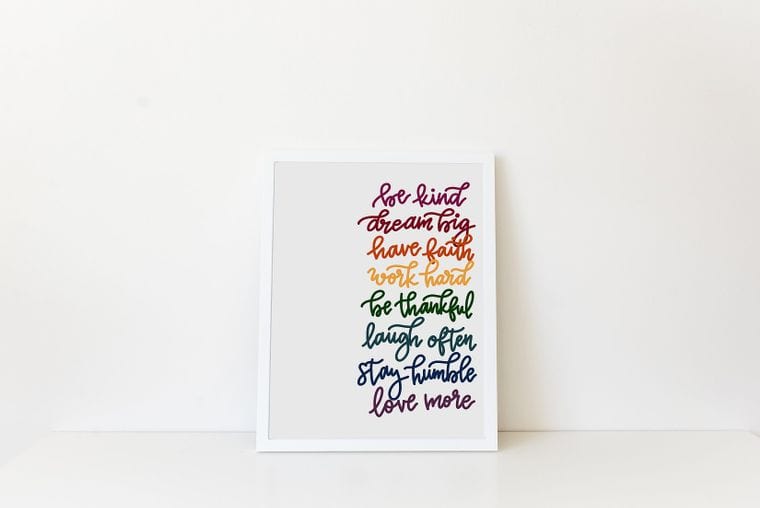 be kind
dream big
have faith
work hard
be thankful
laugh often
stay humble
love more